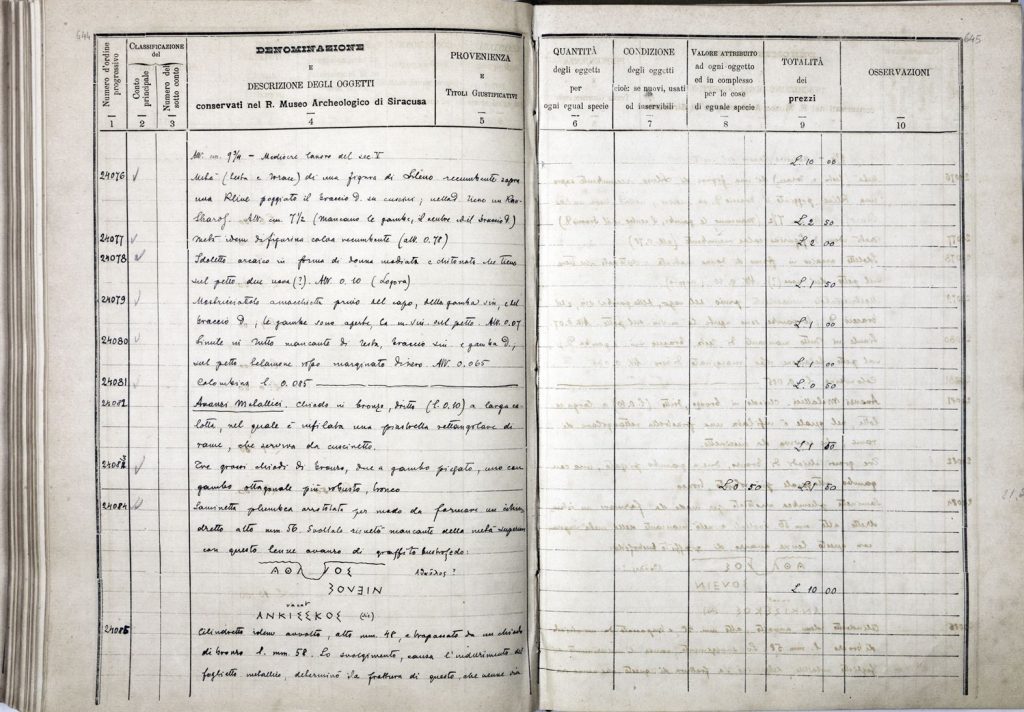 644
645
Numero d'ordine progressivo
CLASSIFICAZIONE del
Conto principale
Numero del sotto conto
DENOMINAZIONE
E
DESCRIZIONE DEGLI OGGETTI
conservati nel R. Museo Archeologico di Siracusa
PROVENIENZA
E
TITOLI GIUSTIFICATIVI
QUANTITÀ
degli oggetti
per
ogni egual specie
CONDIZIONE
degli oggetti
cioè: se nuovi, usati
od inservibili
VALORE ATTRIBUITO
ad ogni oggetto
ed in complesso
per le cose
di eguale specie
TOTALITÀ
dei
prezzi
OSSERVAZIONI
1 2 3 4 5 6 7 8 9 10
Alt. cm. 9 3/4 – Mediocre lavoro del sec. V L. 10 00
24076 Metà (testa e torace) di una figura di Sileno recumbente sopra
una Kline poggiato il braccio D. su cuscini; nella D. tiene un Kan-
tharos. Alt. cm. 7 1/2 (Mancano le gambe, il ventre ed il braccio D.) L. 2 50
24077 Metà idem di figurina calva recumbente (alt. 0.78) L. 2 00
24078 Idoletto arcaico in forma di donna modiata e chitonata che tiene
sul petto due uova (?). Alt. 0.10 (Logora) L. 1 50
24079 Mostriciattolo privo del capo, della gamba sin. e del
braccio D.; le gambe sono aperte, la m. sin. sul petto. Alt. 0.07 L. 1 00
24080 Simile in tutto mancante di testa, braccio sin. e gamba D.,
sul petto marginato di nero. Alt. 0.065 L. 1 00
24081 Colombina l. 0.085 L. 0 50
24082 Avanzi Metallici. Chiodo in bronzo, dritto (l. 0.10) a larga ca-
lotta, nel quale è infilata una piastrella rettangolare di
rame, che serviva da cuscinetto. L. 1 50
Tre grossi chiodi di bronzo, due a gambo piegato, uno con
gambo ottagonale più robusto, bronco L. 0 50 L. 1 50
24084 Laminetta plumbea arrotolata per modo da formare un cilin-
dretto alto mm. 56. Svoltata risultò mancante della metà superiore
con questo lieve avanzo di graffito bustrofedo:
ΑΘΛ ΓΟΣ
ΣΟVΞΙΝ L. 10 00
vacat
ΑΝΚΙΣΣΚΟΣ (sic)
24085 Cilindretto idem avvolto, alto mm. 48, e trapassato da un chiodo
di bronzo l. mm. 58. Lo svolgimento, causa l'indurimento del
foglietto metallico, determinò la frattura di questo, che venne